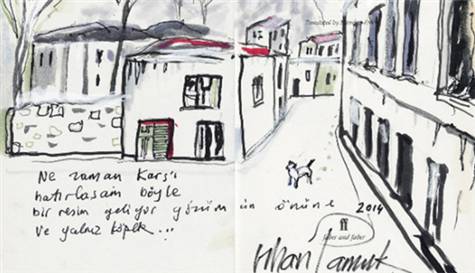 Translated by
Ne zaman Kars'ı
hatırlasam böyle
bir resim geliyor gözümün önüne
ve yalnız köpek...
2014
ff
faber and faber
Orhan Pamuk